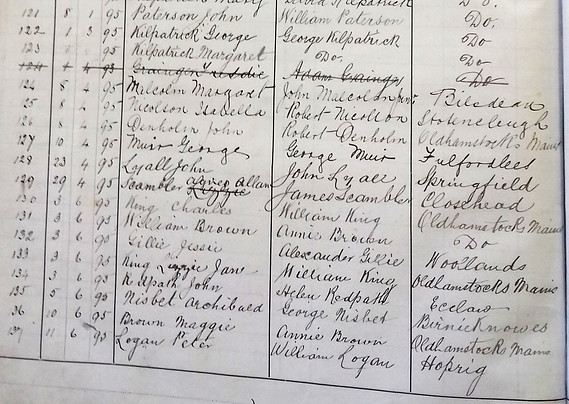 121 8 1 95 Paterson John William Paterson Do.
122 1 3 95 Kilpatrick George George Kilpatrick Do
123 95 Kilpatrick Margaret Do. Do
124 4 93 Adam Do
124 8 4 95 Malcolm Margaret John Malcolm
125 8 4 95 Nicolson Isabella Robert Nicolson Stoneleugh
126 8 4 95 Denholm John Robert Denholm Oldhamstocks Mains
127 10 4 95 Muir George George Muir Fulfordlees
128 23 4 95 Lyall John John Lyall Springfield
129 29 4 95 Scambler Allan James Scambler Closehead
130 3 6 95 King Charles William King Oldhamstocks Mains
131 3 6 95 William Brown Annie Brown Do
132 3 6 95 Gillie Jessie Alexander Gillie Woolands
133 3 6 95 King Lizzie Jane William King Oldhamstocks Mains
134 3 6 95 Redpath John Helen Redpath Ecclaw
135 5 6 95 Nisbet Archibald George Nisbet Birnieknowes
136 10 6 95 Brown Maggie Annie Brown Oldhamstocks Mains
137 11 6 95 Logan Peter William Logan Hoprig